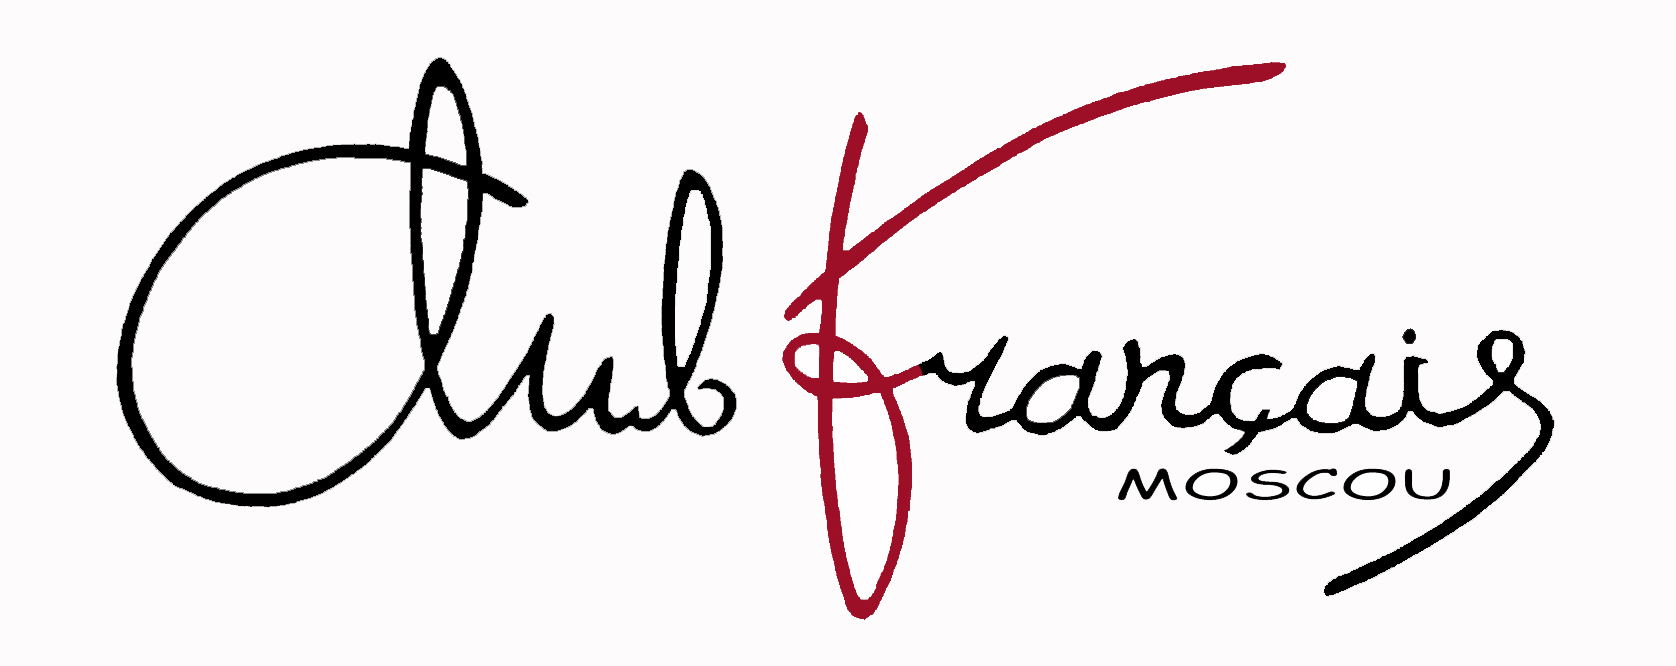 Club Français
MOSCOU